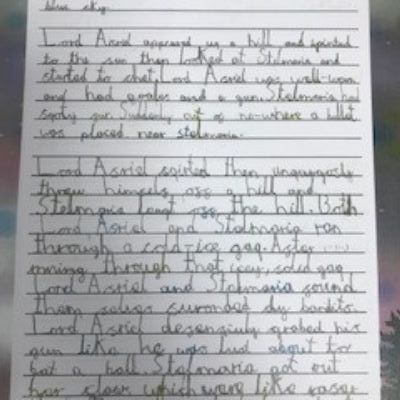 blue sky.
Lord Asriel appeared up a hill and pointed
to the sun then looked at Stelmaria and
started to chat, Lord Asriel was well-worn
and had goales and a gun. Stelmaria had
spoty gur. Suddenly out of no-where a bullet
was placed near stelmaria.
Lord Asriel spirted then
threw himself ogg a hill and
Stelmaria leapt ogg the hill. Both
Lord Asriel and Stelmaria ran
through a cold-ice gag. After
nning through that icey, solid gag
Lord Asriel and Stelmaria sound
them selves suronded by bandits.
Lord Asriel desensivly grabed his
gun like he was just about to
bat a ball. Stelmaria got out
her claws which were like rasor